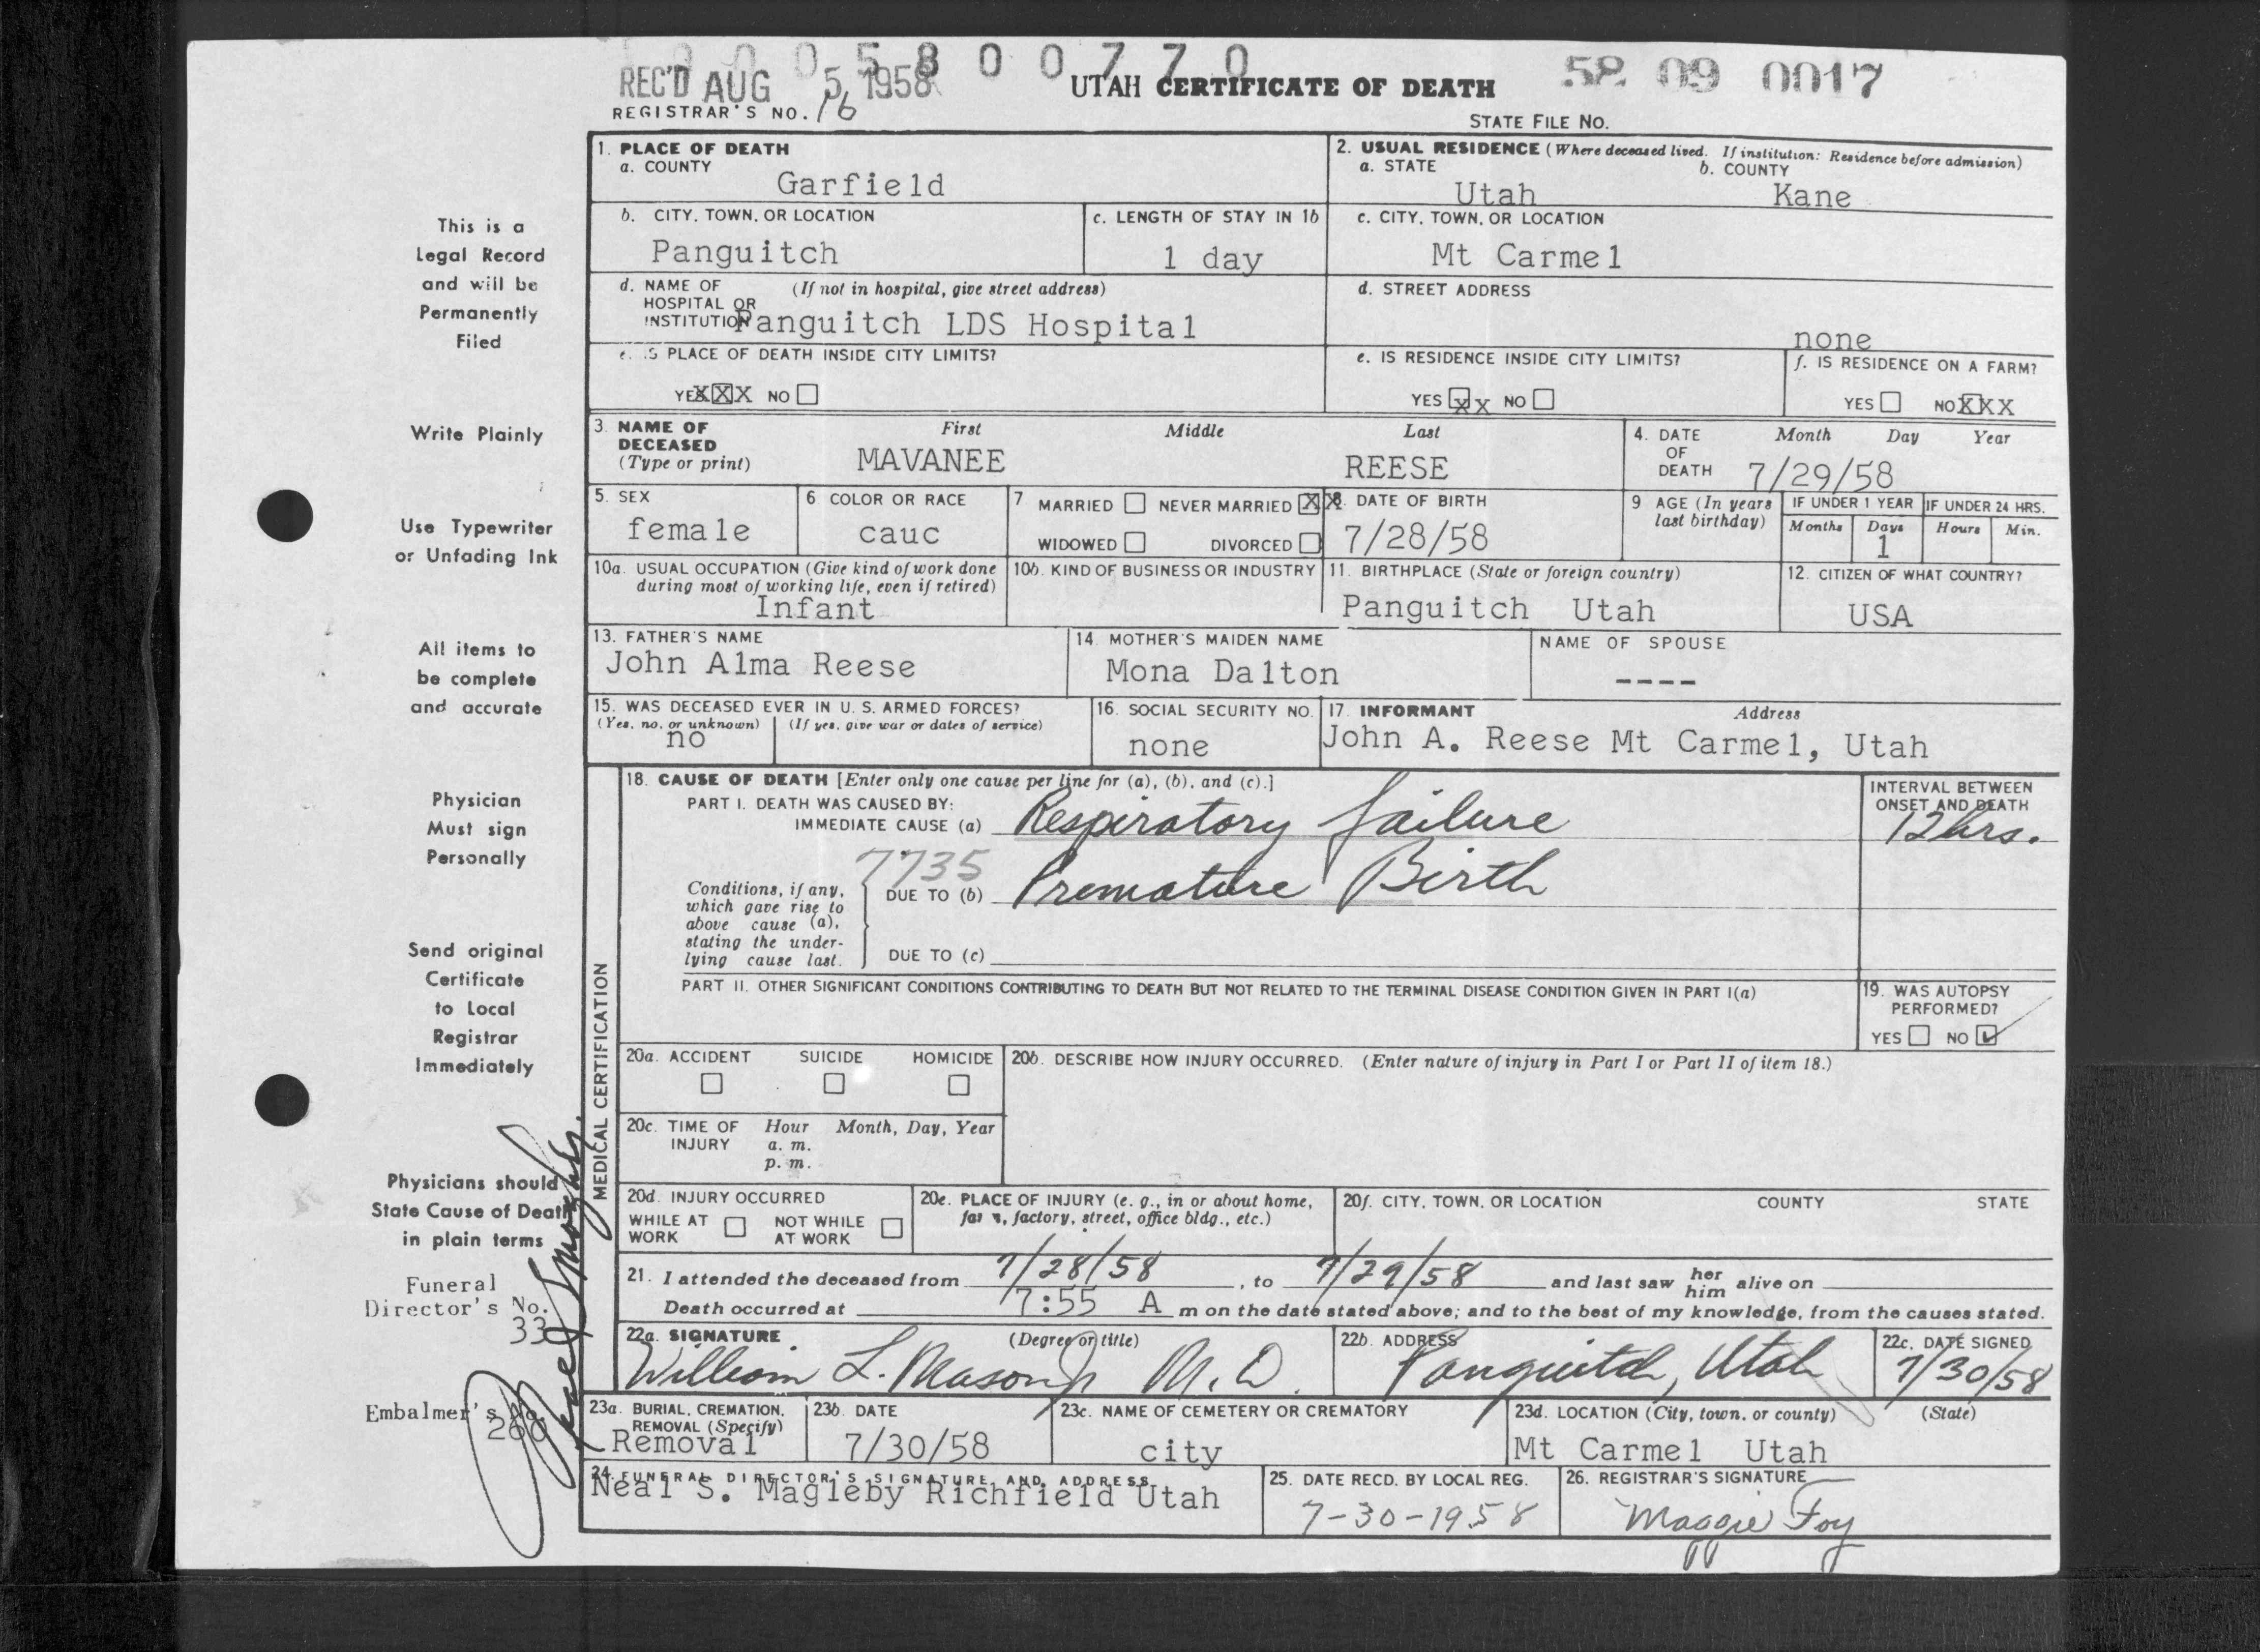 1 9 0 0 5 8 0 0 7 7 0
REC'D AUG 5 1958 UTAH CERTIFICATE OF DEATH 58 09 0017
REGISTRAR'S NO. 16 STATE FILE NO.
1. PLACE OF DEATH
a. COUNTY
Garfield
2. USUAL RESIDENCE (Where deceased lived. If institution: Residence before admission)
a. STATE b. COUNTY
Utah Kane
b. CITY, TOWN, OR LOCATION
Panguitch
c. LENGTH OF STAY IN 1b
1 day
c. CITY, TOWN, OR LOCATION
Mt Carmel
d. NAME OF (If not in hospital, give street address)
HOSPITAL OR
INSTITUTION Panguitch LDS Hospital
d. STREET ADDRESS
none
e. IS PLACE OF DEATH INSIDE CITY LIMITS?
YES XXX NO
e. IS RESIDENCE INSIDE CITY LIMITS?
YES XX NO
f. IS RESIDENCE ON A FARM?
YES NO XXX
3. NAME OF First Middle Last
DECEASED
(Type or print) MAVANEE REESE
4. DATE Month Day Year
OF
DEATH 7/29/58
5. SEX
female
6 COLOR OR RACE
cauc
7 MARRIED NEVER MARRIED XX
WIDOWED DIVORCED
8. DATE OF BIRTH
7/28/58
9 AGE (In years
last birthday)
IF UNDER 1 YEAR IF UNDER 24 HRS.
Months Days Hours Min.
1
10a. USUAL OCCUPATION (Give kind of work done
during most of working life, even if retired)
Infant
10b. KIND OF BUSINESS OR INDUSTRY
11. BIRTHPLACE (State or foreign country)
Panguitch Utah
12. CITIZEN OF WHAT COUNTRY?
USA
13. FATHER'S NAME
John Alma Reese
14. MOTHER'S MAIDEN NAME
Mona Dalton
NAME OF SPOUSE
----
15. WAS DECEASED EVER IN U. S. ARMED FORCES?
(Yes, no, or unknown) (If yes, give war or dates of service)
no
16. SOCIAL SECURITY NO.
none
17. INFORMANT Address
John A. Reese Mt Carmel, Utah
MEDICAL CERTIFICATION
18. CAUSE OF DEATH [Enter only one cause per line for (a), (b), and (c).]
PART I. DEATH WAS CAUSED BY:
IMMEDIATE CAUSE (a) Respiratory failure
INTERVAL BETWEEN
ONSET AND DEATH
12 hrs.
7735
Conditions, if any,
which gave rise to
above cause (a),
stating the under-
lying cause last.
DUE TO (b) Premature Birth
DUE TO (c)
PART II. OTHER SIGNIFICANT CONDITIONS CONTRIBUTING TO DEATH BUT NOT RELATED TO THE TERMINAL DISEASE CONDITION GIVEN IN PART I(a)
19. WAS AUTOPSY
PERFORMED?
YES NO
20a. ACCIDENT SUICIDE HOMICIDE
20b. DESCRIBE HOW INJURY OCCURRED. (Enter nature of injury in Part I or Part II of item 18.)
20c. TIME OF Hour Month, Day, Year
INJURY a. m.
p. m.
20d. INJURY OCCURRED
WHILE AT NOT WHILE
WORK AT WORK
20e. PLACE OF INJURY (e. g., in or about home,
farm, factory, street, office bldg., etc.)
20f. CITY, TOWN, OR LOCATION COUNTY STATE
21. I attended the deceased from 7/28/58, to 7/29/58 and last saw her him alive on
Death occurred at 7:55 A m on the date stated above; and to the best of my knowledge, from the causes stated.
22a. SIGNATURE (Degree or title)
William L. Mason Jr M.D.
22b. ADDRESS
Panguitch, Utah
22c. DATE SIGNED
7/30/58
23a. BURIAL, CREMATION,
REMOVAL (Specify)
Removal
23b. DATE
7/30/58
23c. NAME OF CEMETERY OR CREMATORY
city
23d. LOCATION (City, town, or county) (State)
Mt Carmel Utah
24. FUNERAL DIRECTOR'S SIGNATURE AND ADDRESS
Neal S. Magleby Richfield Utah
25. DATE RECD. BY LOCAL REG.
7-30-1958
26. REGISTRAR'S SIGNATURE
Maggie Foy
This is a
Legal Record
and will be
Permanently
Filed
Write Plainly
Use Typewriter
or Unfading Ink
All items to
be complete
and accurate
Physician
Must sign
Personally
Send original
Certificate
to Local
Registrar
Immediately
Physicians should
State Cause of Death
in plain terms
Funeral
Director's No.
33
Embalmer's No.
260